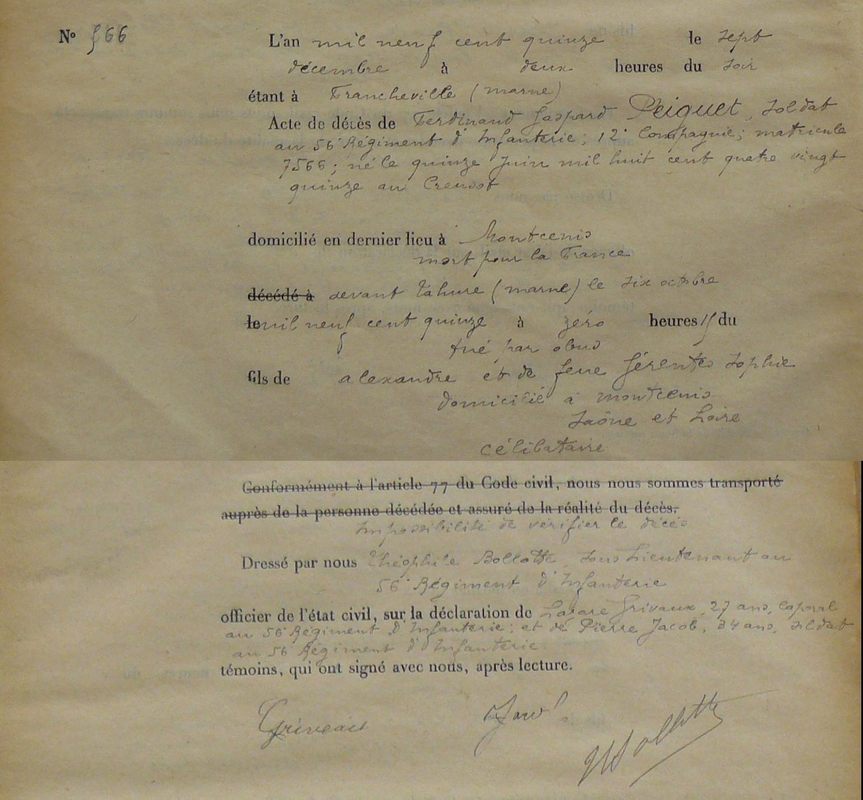 N° 566
L'an mil neuf cent quinze le sept
décembre à deux heures du soir
étant à Francheville (marne)
Acte de décès de Ferdinand Gaspard Peiguet, soldat
au 56e Régiment d'Infanterie; 12e Compagnie; matricule
7566; né le quinze Juin mil huit cent quatre vingt
quinze au Creusot
domicilié en dernier lieu à Montcenis
mort pour la France
décédé à devant Tahure (marne) le six octobre
le mil neuf cent quinze à zéro heures 15 du
tué par obus
fils de alexandre et de feue Gérentes Sophie
domicilié à montcenis
Saône et Loire
célibataire
Conformément à l'article 77 du Code civil, nous nous sommes transporté
auprès de la personne décédée et assuré de la réalité du décès.
Impossibilité de vérifier le décès
Dressé par nous Théophile Bollotte Sous Lieutenant au
56e Régiment d'Infanterie
officier de l'état civil, sur la déclaration de Lazare Grivaux, 27 ans, caporal
au 56e Régiment d'Infanterie; et de Pierre Jacob, 34 ans, soldat
au 56e Régiment d'Infanterie
témoins, qui ont signé avec nous, après lecture.
Griveaux Jacob Bollotte